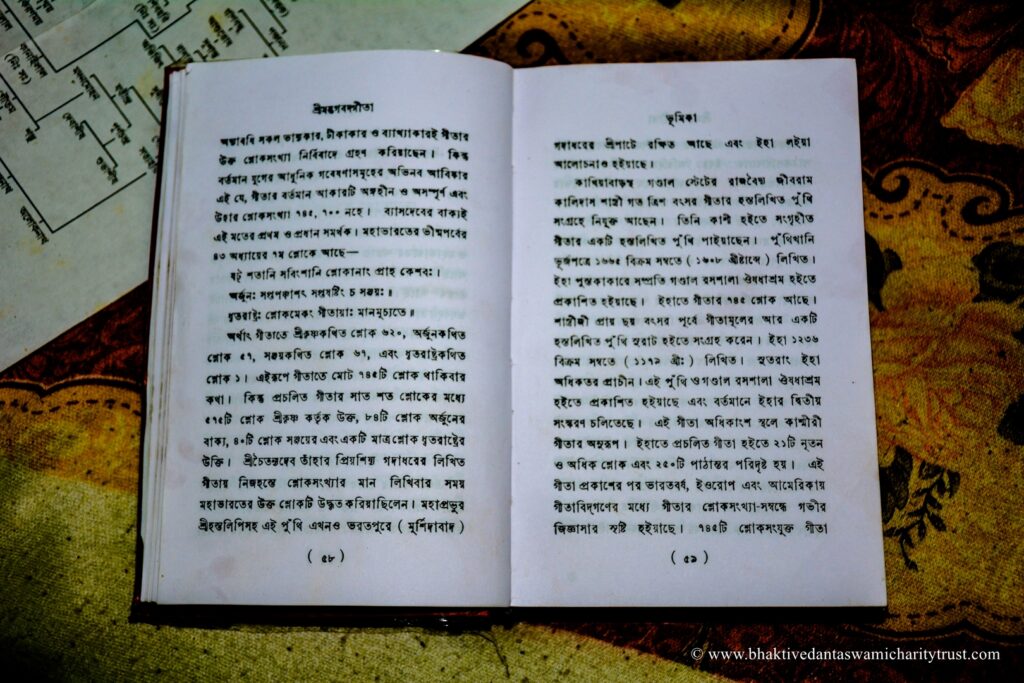 শ্রীমদ্ভগবদ্গীতা
অদ্যাবধি সকল ভাষ্যকার, টীকাকার ও ব্যাখ্যাকারই গীতার
উক্ত শ্লোকসংখ্যা নির্বিবাদে গ্রহণ করিয়াছেন। কিন্তু
বর্তমান যুগের আধুনিক গবেষণাসমূহের অভিনব আবিষ্কার
এই যে, গীতার বর্তমান আকারটি অঙ্গহীন ও অসম্পূর্ণ এবং
উহার শ্লোকসংখ্যা ৭৪৫, ৭০০ নহে। ব্যাসদেবের বাক্যই
এই মতের প্রথম ও প্রধান সমর্থক। মহাভারতের ভীষ্মপর্বের
৪৩ অধ্যায়ের ৭ম শ্লোকে আছে—
ষট্ শতানি সবিংশানি শ্লোকানাং প্রাহ কেশবঃ।
অর্জুনঃ সপ্তপঞ্চাশৎ সপ্তষষ্টিং চ সঞ্জয়ঃ।
ধৃতরাষ্ট্রঃ শ্লোকমেকং গীতায়াঃ মানমুচ্যতে॥
অর্থাৎ গীতাতে শ্রীকৃষ্ণকথিত শ্লোক ৬২০, অর্জুনকথিত
শ্লোক ৫৭, সঞ্জয়কথিত শ্লোক ৬৭, এবং ধৃতরাষ্ট্রকথিত
শ্লোক ১। এইরূপে গীতাতে মোট ৭৪৫টি শ্লোক থাকিবার
কথা। কিন্তু প্রচলিত গীতার সাত শত শ্লোকের মধ্যে
৫৭৫টি শ্লোক শ্রীকৃষ্ণ কর্তৃক উক্ত, ৮৪টি শ্লোক অর্জুনের
বাক্য, ৪০টি শ্লোক সঞ্জয়ের এবং একটি মাত্র শ্লোক ধৃতরাষ্ট্রের
উক্তি। শ্রীচৈতন্যদেব তাঁহার প্রিয়শিষ্য গদাধরের লিখিত
গীতায় নিজহস্তে শ্লোকসংখ্যার মান লিখিবার সময়
মহাভারতের উক্ত শ্লোকটি উদ্ধৃত করিয়াছিলেন। মহাপ্রভুর
শ্রীহস্তলিপিসহ এই পুঁথি এখনও ভরতপুরে ( মুর্শিদাবাদ )
( ৫৮ )
ভূমিকা
গদাধরের শ্রীপাটে রক্ষিত আছে এবং ইহা লইয়া
আলোচনাও হইয়াছে।
কাথিয়াবাড়স্থ গণ্ডাল স্টেটের রাজবৈদ্য জীবরাম
কালিদাস শাস্ত্রী গত ত্রিশ বৎসর গীতার হস্তলিখিত পুঁথি
সংগ্রহে নিযুক্ত আছেন। তিনি কাশী হইতে সংগৃহীত
গীতার একটি হস্তলিখিত পুঁথি পাইয়াছেন। পুঁথিখানি
ভূর্জপত্রে ১৬৬৫ বিক্রম সম্বতে ( ১৬০৮ খ্রীষ্টাব্দে ) লিখিত।
ইহা পুস্তকাকারে সম্প্রতি গণ্ডাল রসশালা ঔষধাশ্রম হইতে
প্রকাশিত হইয়াছে। ইহাতে গীতার ৭৪৫ শ্লোক আছে।
শাস্ত্রীজী প্রায় ছয় বৎসর পূর্বে গীতামূলের আর একটি
হস্তলিখিত পুঁথি সুরাট হইতে সংগ্রহ করেন। ইহা ১২৩৬
বিক্রম সম্বতে ( ১১৭৯ খ্রীঃ ) লিখিত। সুতরাং ইহা
অধিকতর প্রাচীন। এই পুঁথি ও গণ্ডাল রসশালা ঔষধাশ্রম
হইতে প্রকাশিত হইয়াছে এবং বর্তমানে ইহার দ্বিতীয়
সংস্করণ চলিতেছে। এই গীতা অধিকাংশ স্থলে কাশ্মীরী
গীতার অনুরূপ। ইহাতে প্রচলিত গীতা হইতে ২১টি নূতন
ও অধিক শ্লোক এবং ২৫০টি পাঠান্তর পরিদৃষ্ট হয়। এই
গীতা প্রকাশের পর ভারতবর্ষ, ইওরোপ এবং আমেরিকায়
গীতাবিদ্‌গণের মধ্যে গীতার শ্লোকসংখ্যা-সম্বন্ধে গভীর
জিজ্ঞাসার সৃষ্টি হইয়াছে। ৭৪৫টি শ্লোকসংযুক্ত গীতা
( ৫৯ )
© www.bhaktivedantaswamicharitytrust.com